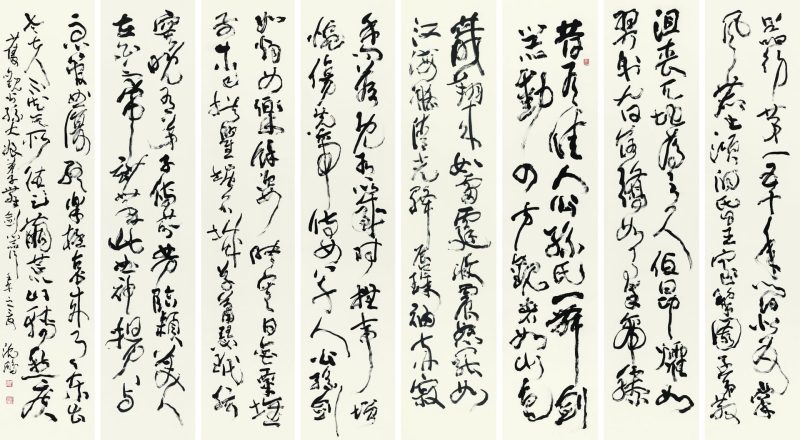 器初第一五十年間似反掌
風塵澒洞昏王室梨園子弟散
沮喪天地為之久低昂㸌如
羿射九日落矯如群帝驂
昔有佳人公孫氏一舞劍
器動四方觀者如山色
龍翔來如雷霆收震怒罷如
江海凝清光絳唇珠袖兩寂
余問答既有以感時撫事增
惋傷先帝侍女八千人公孫劍
如煙女樂餘姿映寒日金粟堆
前木已拱瞿塘石城草蕭瑟玳筵
寞晚有弟子傳芬芳臨潁美人
在白帝妙舞此曲神揚揚與
急管曲復終樂極哀來月東出
老夫不知其所往足繭荒山轉愁疾
觀公孫大娘弟子舞劍器行 沈鵬